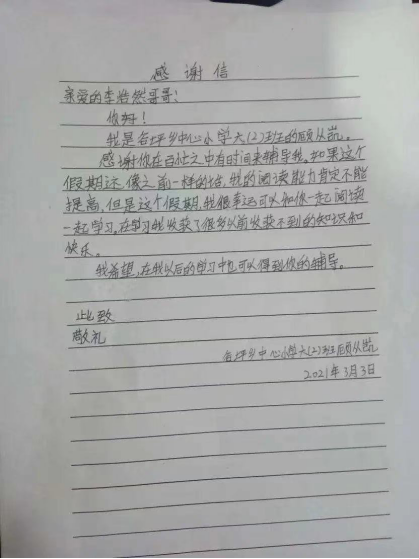 感谢信
亲爱的李浩然哥哥：
你好！
我是各坪乡中心小学六(2)班的顾从凯。
感谢你在百忙之中有时间来辅导我。如果这个
假期还像之前一样的话，我的阅读能力肯定不能
提高，但是这个假期，我很幸运可以和你一起阅读
一起学习，在学习我收获了很多以前收获不到的知识和
快乐。
我希望，在我以后的学习中也可以得到你的辅导。
此致
敬礼
各坪乡中心小学六(2)班顾从凯
2021年3月3日